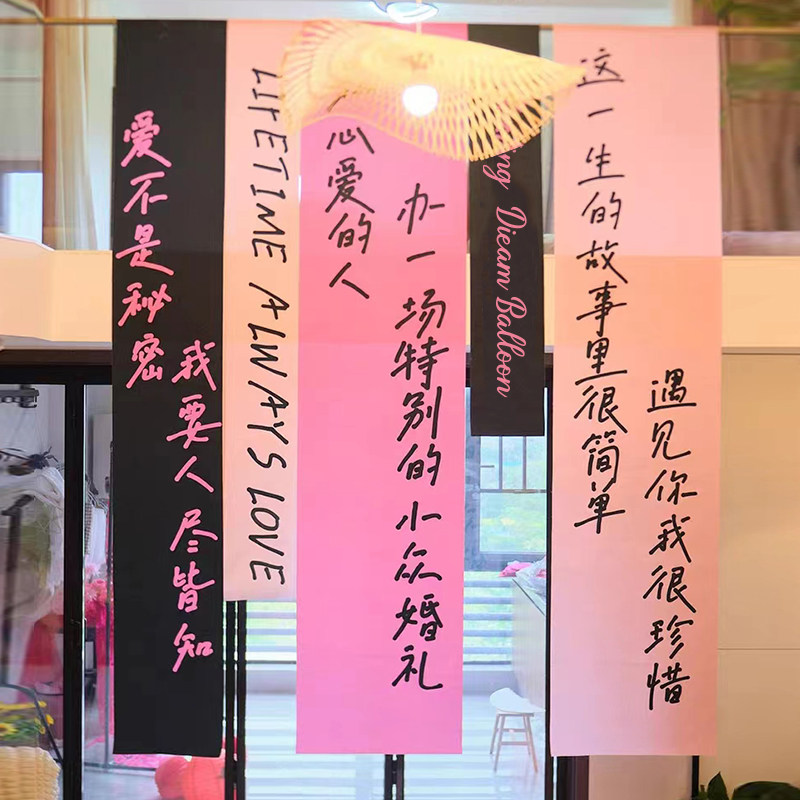 爱不是秘密
我要人尽皆知
LIFETIME ALWAYS LOVE
心爱的人
办一场特别的小众婚礼
Dieam Balloon
这一生的故事里很简单
遇见你我很珍惜